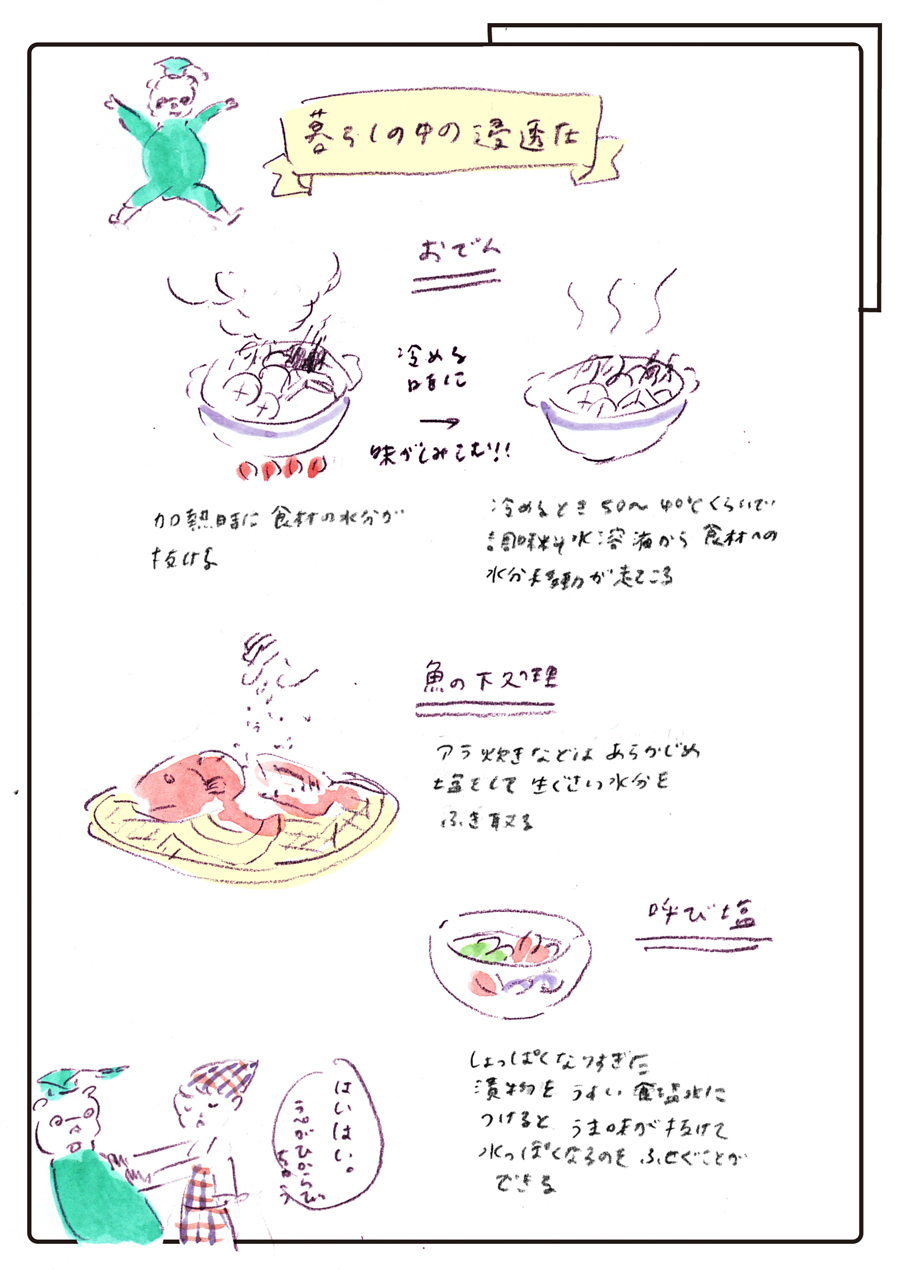 暮らしの中の浸透圧
おでん
冷める
時に
→
味がしみこむ!!
加熱時に食材の水分が
抜ける
冷めるとき 50〜40℃くらいで
調味料水溶液から食材への
水分移動が起こる
魚の下処理
アラ炊きなどは あらかじめ
塩をして 生ぐさい水分を
ふき取る
呼び塩
しょっぱくなりすぎた
漬物を うすい 食塩水に
つけると うま味が抜けて
水っぽくなるのを ふせぐことが
できる
はいはい。